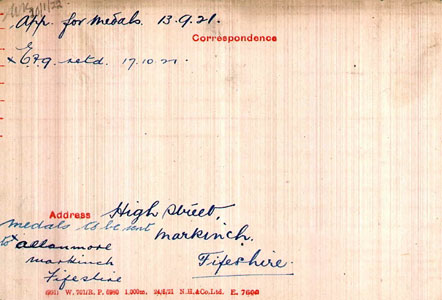 App. for medals. 13.9.21.
Correspondence
x E79. retd. 17.10.21.
Address High Street,
medals to be sent Markinch.
to x allanmore Fifeshire.
markinch
Fifeshire
(901) W. 761/R. P. 6980 1,000m. 24/6/21 N.H.&Co.Ltd. E. 7600